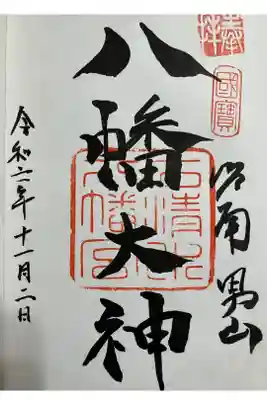 奉拝
國寶
洛南 男山
八幡大神
石清水八幡宮
令和六年十一月二日